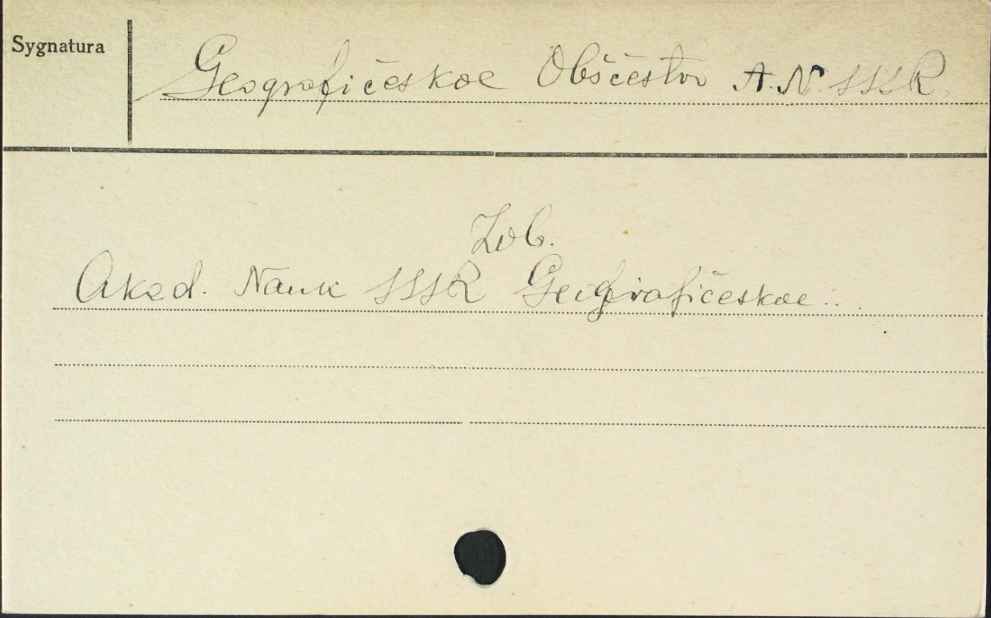 Sygnatura
Geografičeskoe Obščestvo A.N. SSSR.
Zob.
Akad. Nauk SSSR Geografičeskoe...